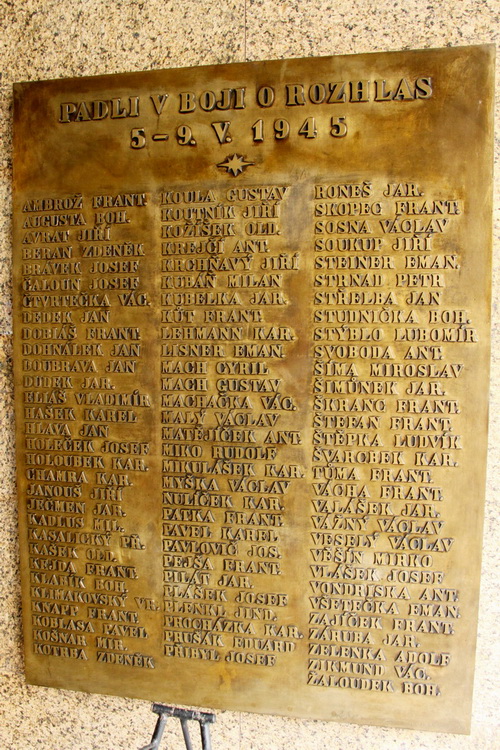 PADLI V BOJI O ROZHLAS
5-9. V. 1945
AMBROŽ FRANT.
AUGUSTA BOH.
AVRAT JIŘÍ
BERAN ZDENĚK
BRÁVEK JOSEF
ČALOUN JOSEF
ČTVRTEČKA VÁC.
DEDEK JAN
DOBIÁŠ FRANT.
DOHNÁLEK JAN
DOUBRAVA JAN
DUDEK JAR.
ELIÁŠ VLADIMÍR
HAŠEK KAREL
HLAVA JAN
HOLEČEK JOSEF
HOLOUBEK KAR.
CHAMRA KAR.
JANOUŠ JIŘÍ
JEČMEN JAR.
KADLUS MIL.
KASALICKÝ PŘ.
KAŠEK OLD.
KEJDA FRANT.
KLABÍK BOH.
KLIMAKOVSKÝ VR.
KNAPP FRANT.
KOBLASA PAVEL
KOŠNAR MOR.
KOTRBA ZDENĚK
KOULA GUSTAV
KOUTNÍK JIŘÍ
KOŽÍŠEK OLD.
KREJČÍ ANT.
KRCHŇAVÝ JIŘÍ
KUBÁN MILAN
KUBELKA JAR.
KÚT FRANT.
LEHMANN KAR.
LISNER EMAN.
MACH CYRIL
MACH GUSTAV
MACHAČKA VÁC.
MALÝ VÁCLAV
MATĚJÍČEK ANT.
MIKO RUDOLF
MIKULÁŠEK KAR.
MYŠKA VÁCLAV
NULÍČEK KAR.
PATKA FRANT.
PAVEL KAREL
PAVLOVIČ JOS.
PEJŠA FRANT.
PILÁT JAR.
PLÁŠEK JOSEF
PLENKL JIND.
PROCHÁZKA KAR.
PRUŠÁK EDUARD
PŘIBYL JOSEF
RONEŠ JAR.
SKOPEC FRANT.
SOSNA VÁCLAV
SOUKUP JIŘÍ
STEINER EMAN.
STRNAD PETR
STŘELBA JAN
STUDNIČKA BOH.
STÝBLO LUBOMÍR
SVOBODA ANT.
ŠÍMA MIROSLAV
ŠIMŮNEK JAR.
ŠKRANC FRANT.
ŠTEFAN FRANT.
ŠTĚPKA LUDVÍK
ŠVARCBEK KAR.
TŮMA FRANT.
VÁCHA FRANT.
VALÁŠEK JAR.
VÁŽNÝ VÁCLAV
VESELÝ VÁCLAV
VĚŠÍN MIRKO
VLÁŠEK JOSEF
VONDRISKA ANT.
VŠETEČKA EMAN.
ZAJÍČEK FRANT.
ZÁRUBA JAR.
ZELENKA ADOLF
ZIKMUND VÁC.
ŽALOUDEK BOH.